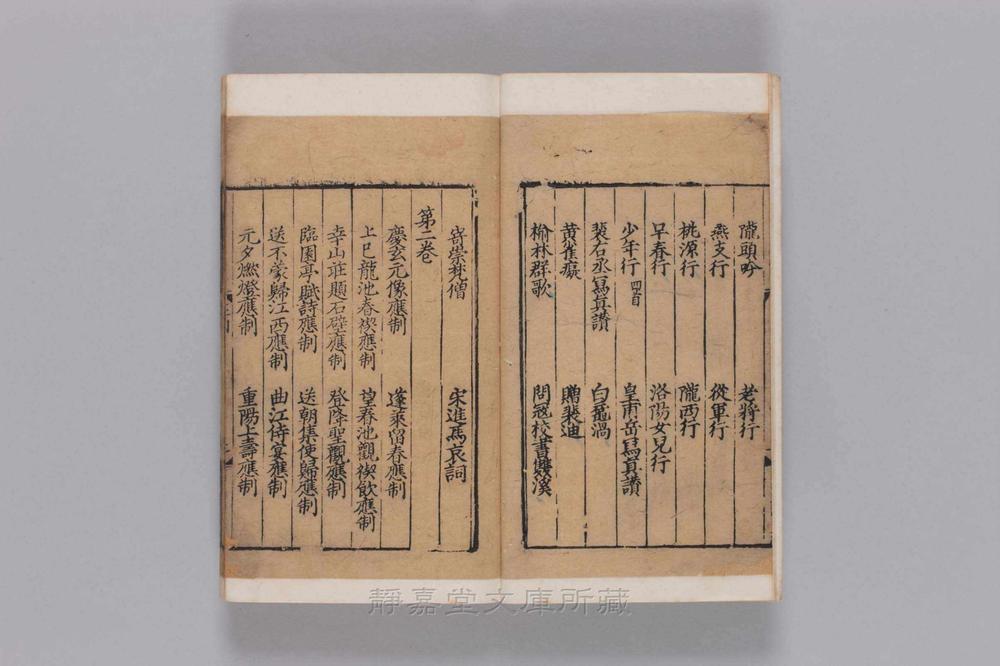 隴頭吟 老將行
燕支行 從軍行
桃源行 隴西行
早春行 洛陽女兒行
少年行 四首 皇甫岳寫真讃
裴右丞寫真讃 白黿渦
黄雀癡 贈裴迪
榆林郡歌 問冦校書雙溪
寄崇梵僧 宋進馬哀詞
第二卷
慶玄元像應制 蓬萊留春應制
上巳龍池春禊應制 望春池觀禊飲應制
幸山莊題石壁應制 登降聖觀應制
臨園亭賦詩應制 送朝集使歸應制
送不蒙歸江西應制 曲江侍宴應制
元夕燃燈應制 重陽上壽應制
靜嘉堂文庫所藏